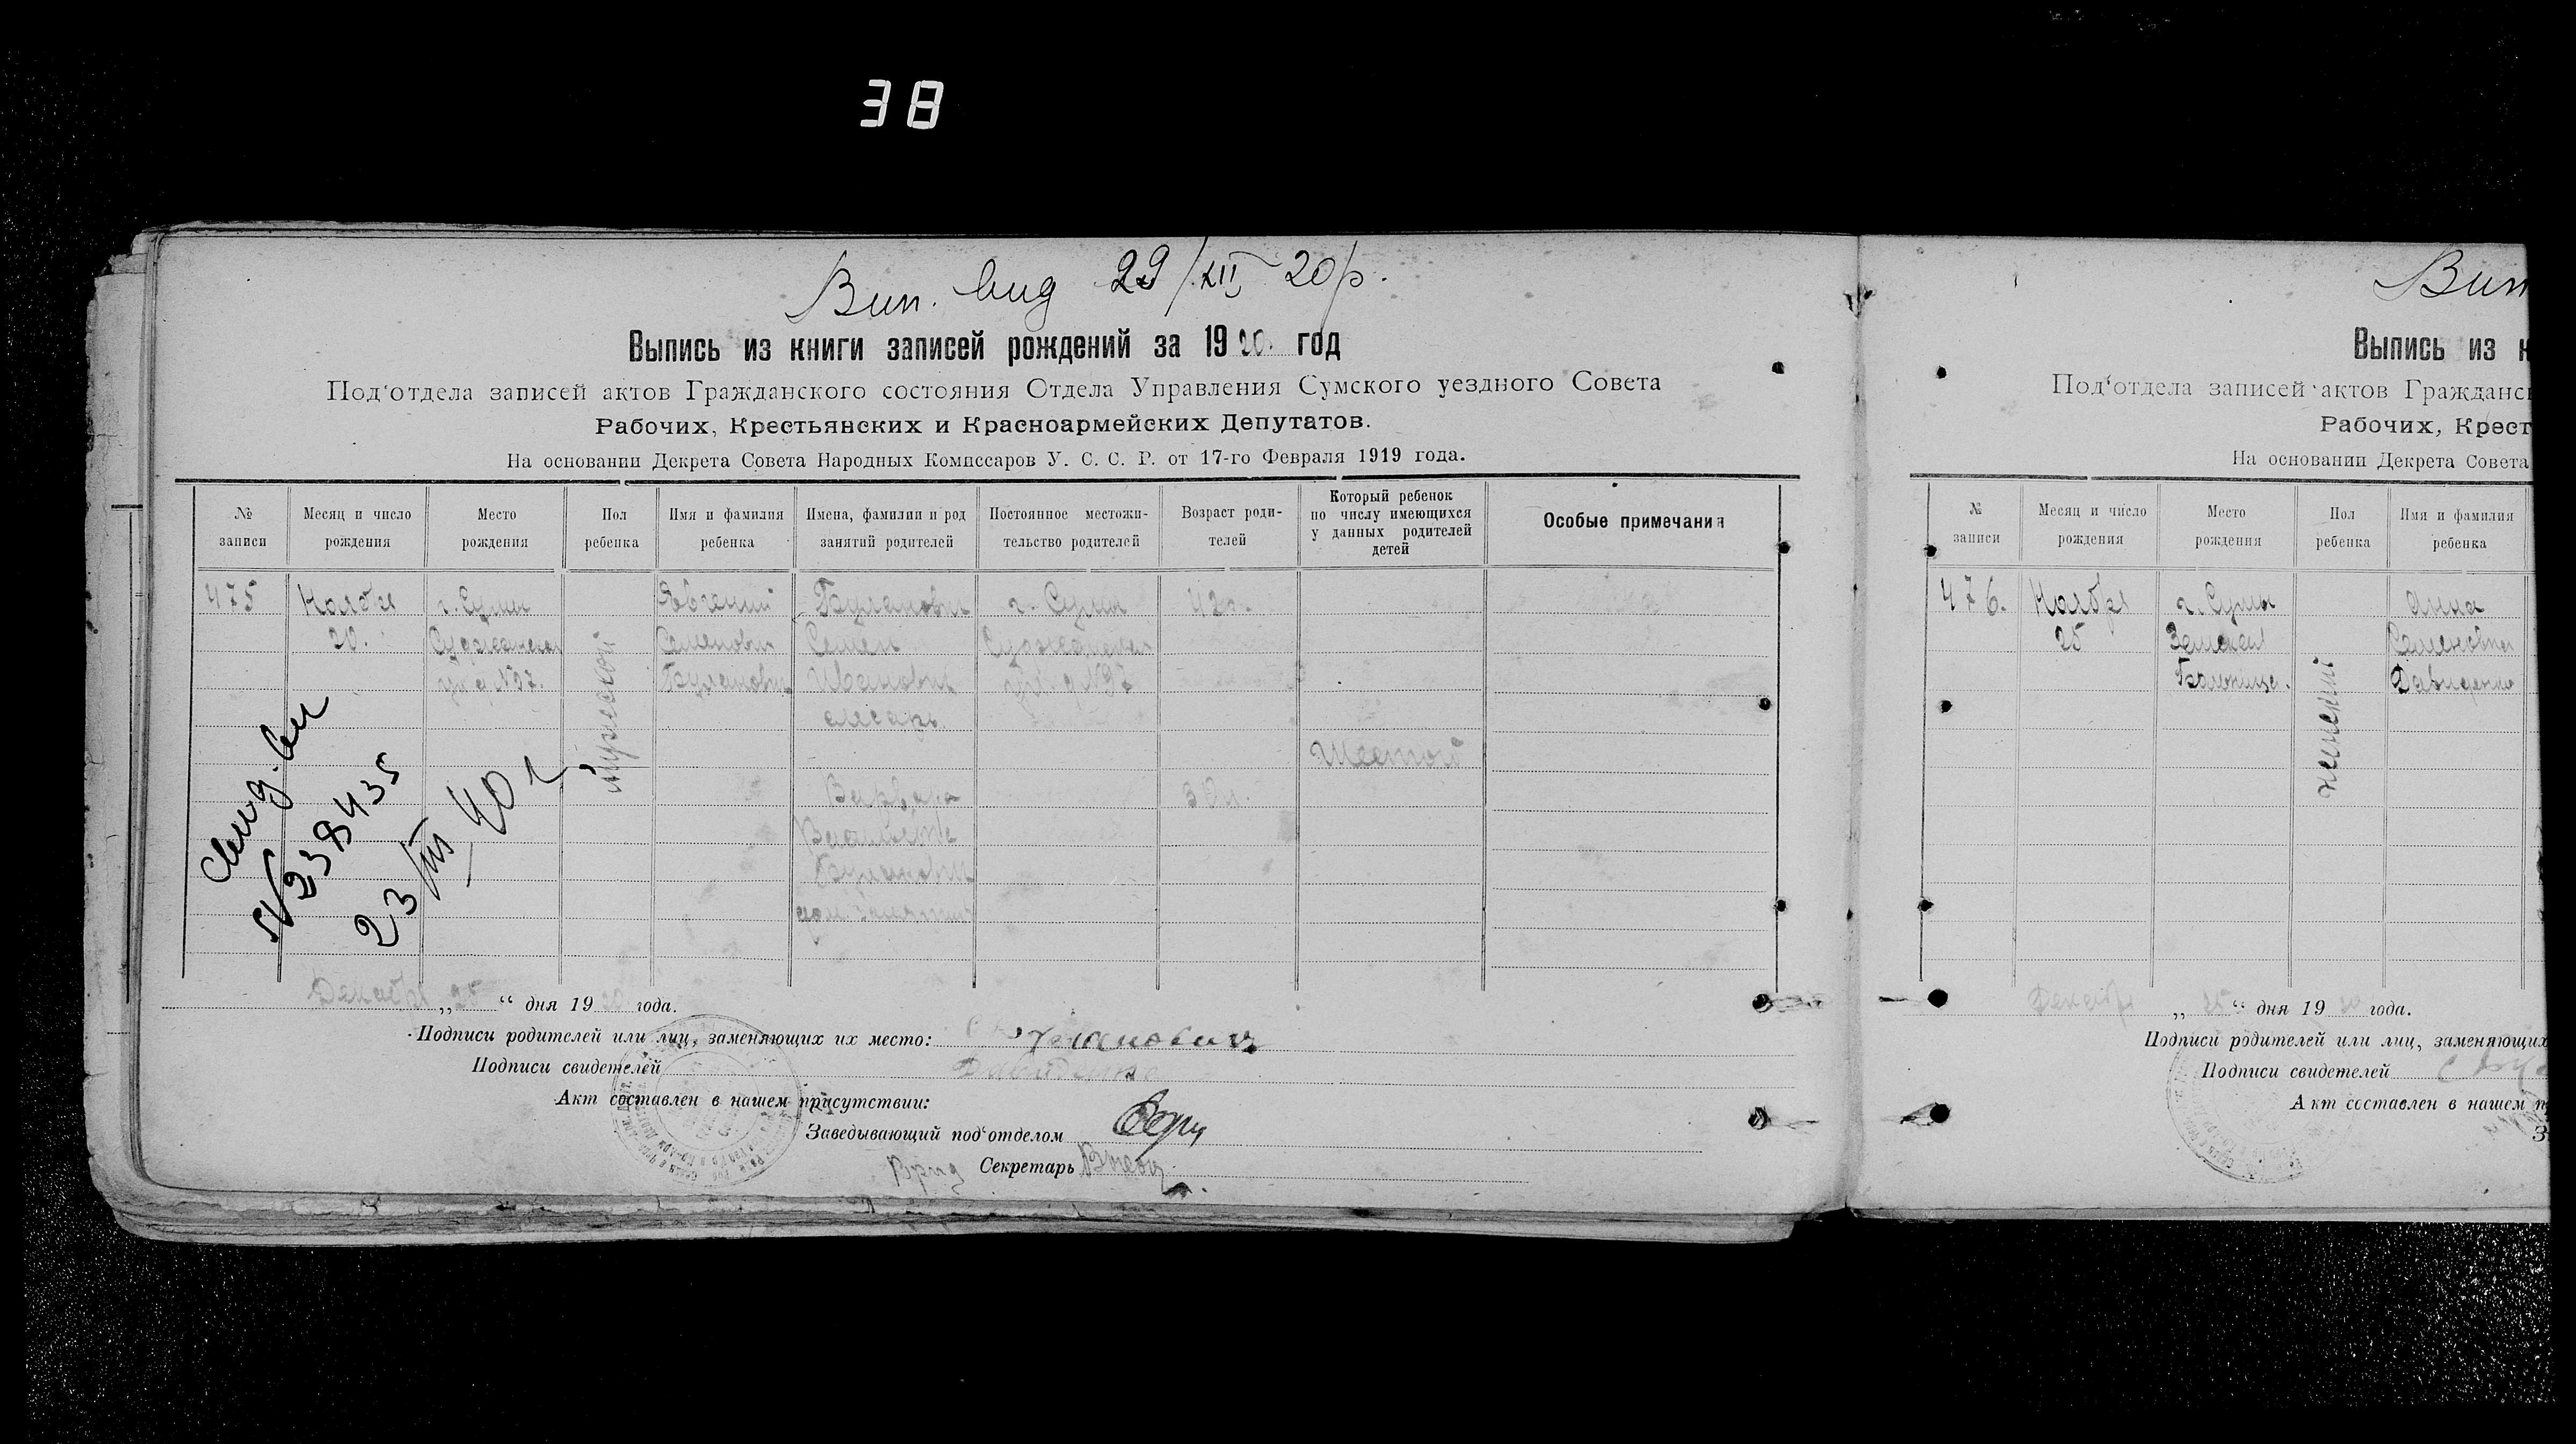 38
Вип. вид 29/XII 20 р.
Выпись из книги записей рождений за 1920. год
Под‘отдела записей актов Гражданского состояния Отдела Управления Сумского уездного Совета
Рабочих, Крестьянских и Красноармейских Депутатов.
На основании Декрета Совета Народных Комиссаров У. С. С. Р. от 17-го Февраля 1919 года.
№ записи
Месяц и число рождения
Место рождения
Пол ребенка
Имя и фамилия ребенка
Имена, фамилии и род занятий родителей
Постоянное местожительство родителей
Возраст родителей
Который ребенок по числу имеющихся у данных родителей детей
Особые примечания
475
Ноября
20.
г. Сумы
Суджанская
ул. д №37.
мужской
Евгений
Семенович
Буланович
Буланович
Семен
Иванович
слесарь.
Варвара
Васильевна
Буланович
дом. занятия
г. Сумы
Суджанская
ул. д №37
42 г.
30 л.
Шестой
Свид. вы
№238435
23/III 40 г
Декабря „25“ дня 1920 года.
Подписи родителей или лиц, заменяющих их место: Буланович
Подписи свидетелей Давиденко
Акт составлен в нашем присутствии:
Заведывающий под‘отделом
Врид Секретарь
Вип
Выпись из к
Под‘отдела записей актов Гражданс
Рабочих, Крест
На основании Декрета Совета
№ записи
Месяц и число рождения
Место рождения
Пол ребенка
Имя и фамилия ребенка
476.
Ноября
25
г. Сумы
Земская
Больница.
женский
Анна
Семеновна
Давиденко
Декабря „25“ дня 1920 года.
Подписи родителей или лиц, заменяющих
Подписи свидетелей
Акт составлен в нашем п
З